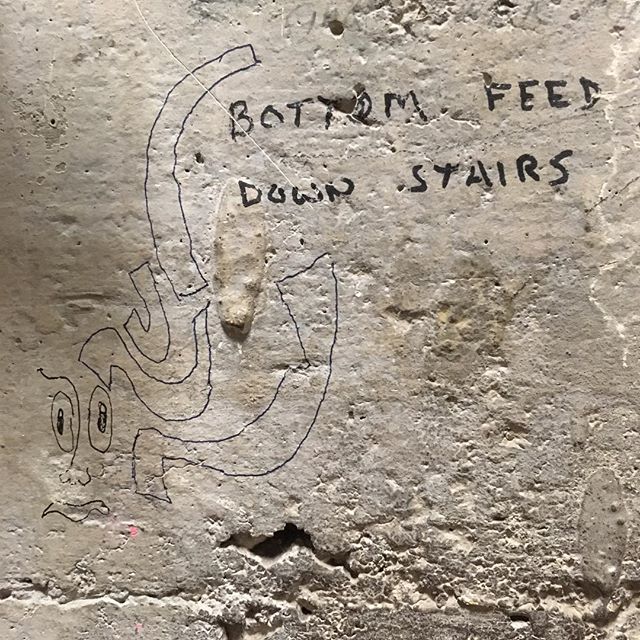 BOTTOM FEED
DOWN STAIRS